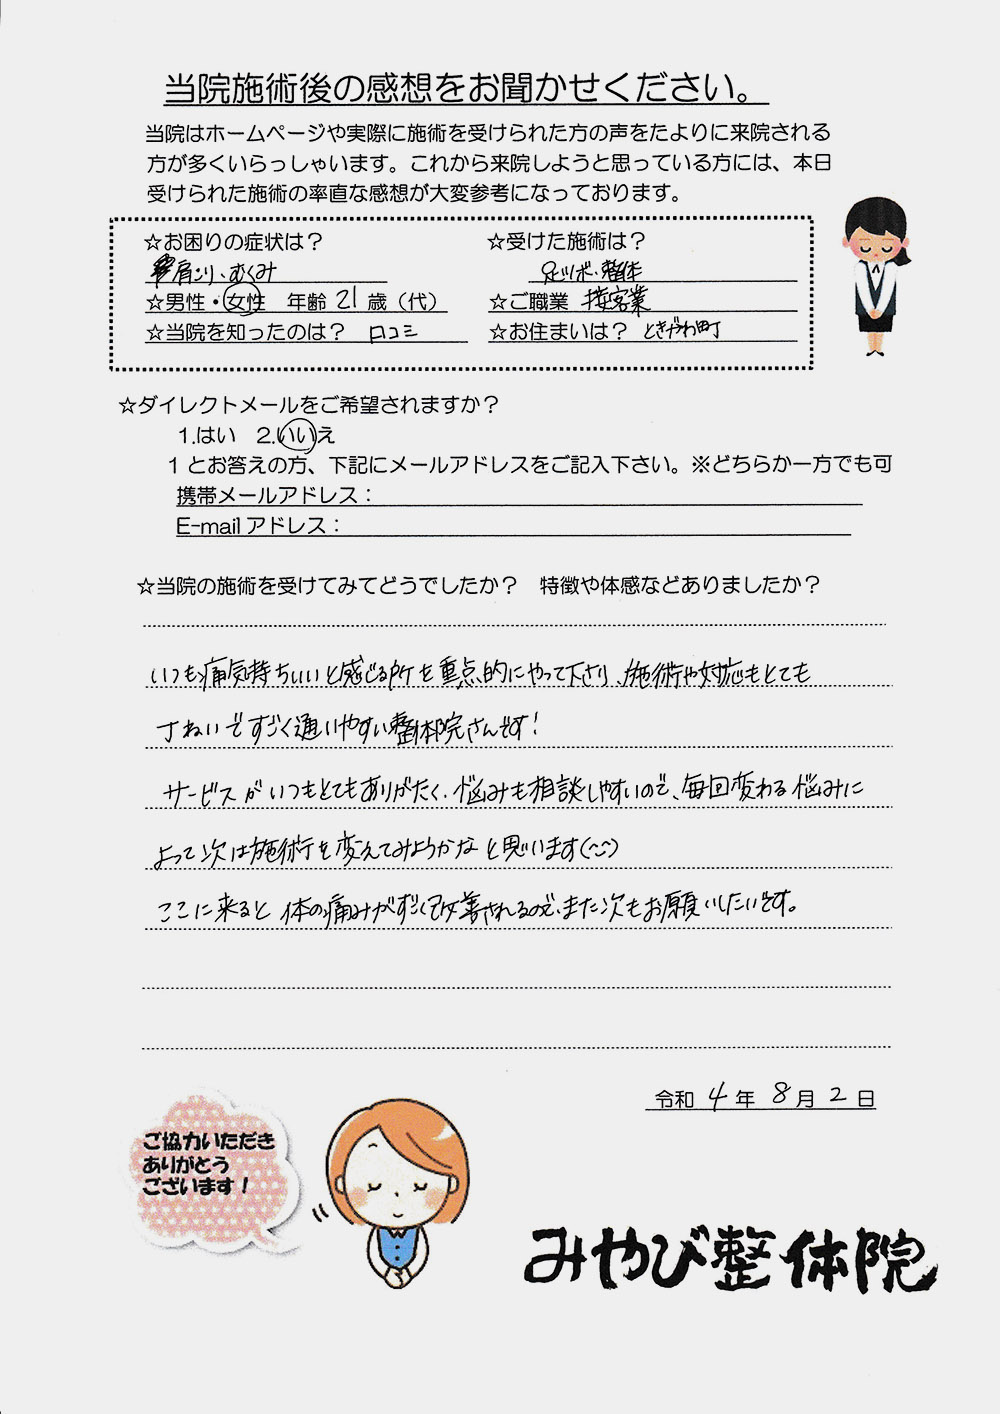 当院施術後の感想をお聞かせください。
当院はホームページや実際に施術を受けられた方の声をたよりに来院される
方が多くいらっしゃいます。これから来院しようと思っている方には、本日
受けられた施術の率直な感想が大変参考になっております。
☆お困りの症状は？ ☆受けた施術は？
肩こり、むくみ 足ツボ・整体
☆男性・女性 年齢 21 歳（代） ☆ご職業 接客業
☆当院を知ったのは？ 口コミ ☆お住まいは？ ときがわ町
☆ダイレクトメールをご希望されますか？
1.はい 2.いいえ
1 とお答えの方、下記にメールアドレスをご記入下さい。※どちらか一方でも可
携帯メールアドレス：
E-mail アドレス：
☆当院の施術を受けてみてどうでしたか？ 特徴や体感などありましたか？
いつも痛気持ちいいと感じる所を重点的にやって下さり、施術や対応もとても
丁ねいですごく通いやすい整体院さんです！
サービスがいつもとてもありがたく、悩みも相談しやすいので、毎回変わる悩みに
よって次は施術を変えてみようかなと思います(^^)
ここに来ると体の痛みがすごく改善されるので、また次もお願いしたいです。
令和 4 年 8 月 2 日
ご協力いただき
ありがとう
ございます！
みやび整体院